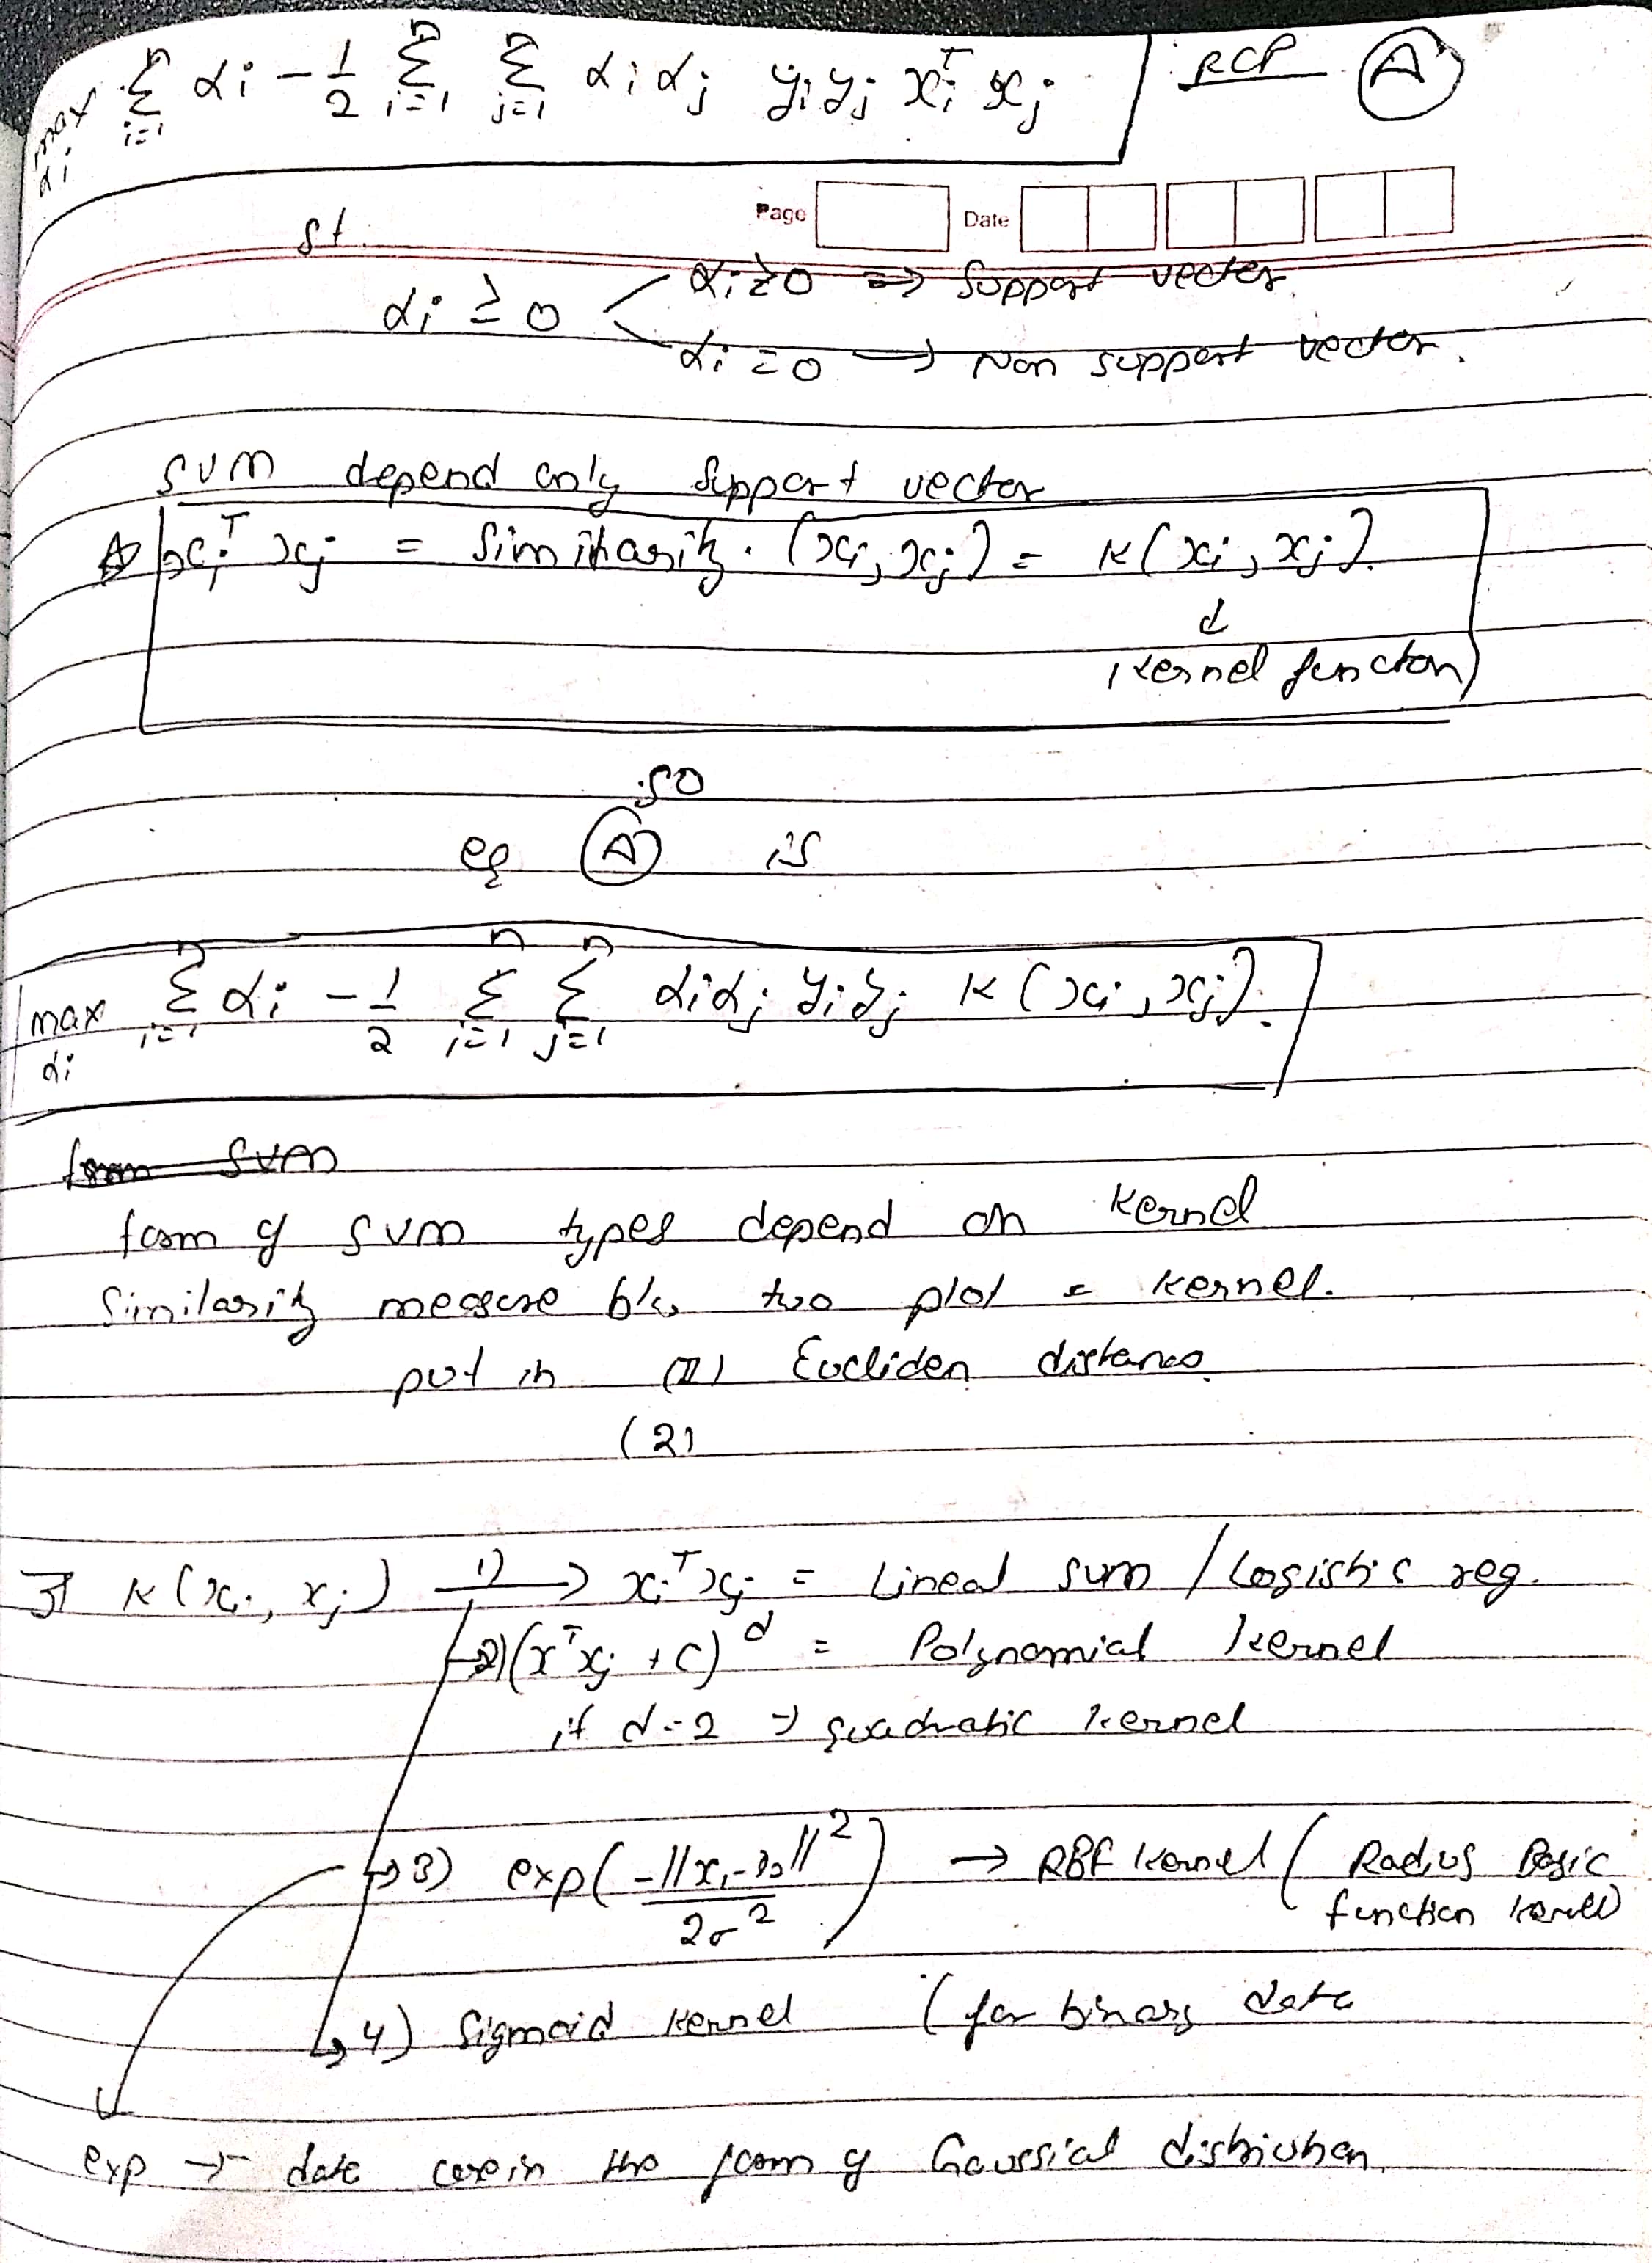 max αi Σ i=1 n αi - 1/2 Σ i=1 n Σ j=1 n αi αj yi yj xiᵀ xj RCP (A)
Page Date
st.
αi ≥ 0 αi ≥ 0 => Support vector.
αi = 0 → Non support vector.
SVM depend only Support vector
xiᵀ xj = Similarity. (xi, xj) = K(xi, xj).
↓
kernel functon
so
eq (A) is
max αi Σ i=1 n αi - 1/2 Σ i=1 n Σ j=1 n αi αj yi yj K(xi, xj).
form SVM
form of SVM types depend on kernel
Similarity measure b/w two plot = kernel.
put in (1) Eucliden distance.
(2)
K(xi, xj) 1) → xiᵀxj = Linear SVM / Logistic reg.
→ 2) (xᵀxj + c)ᵈ = Polynomial kernel
if d=2 → quadratic kernel
→ 3) exp(-||x1-x2||² / 2σ²) → RBF kernel (Radius Basic
function kernel)
→ 4) Sigmoid kernel (for binary data
exp → data in the form of Gaussial distribution